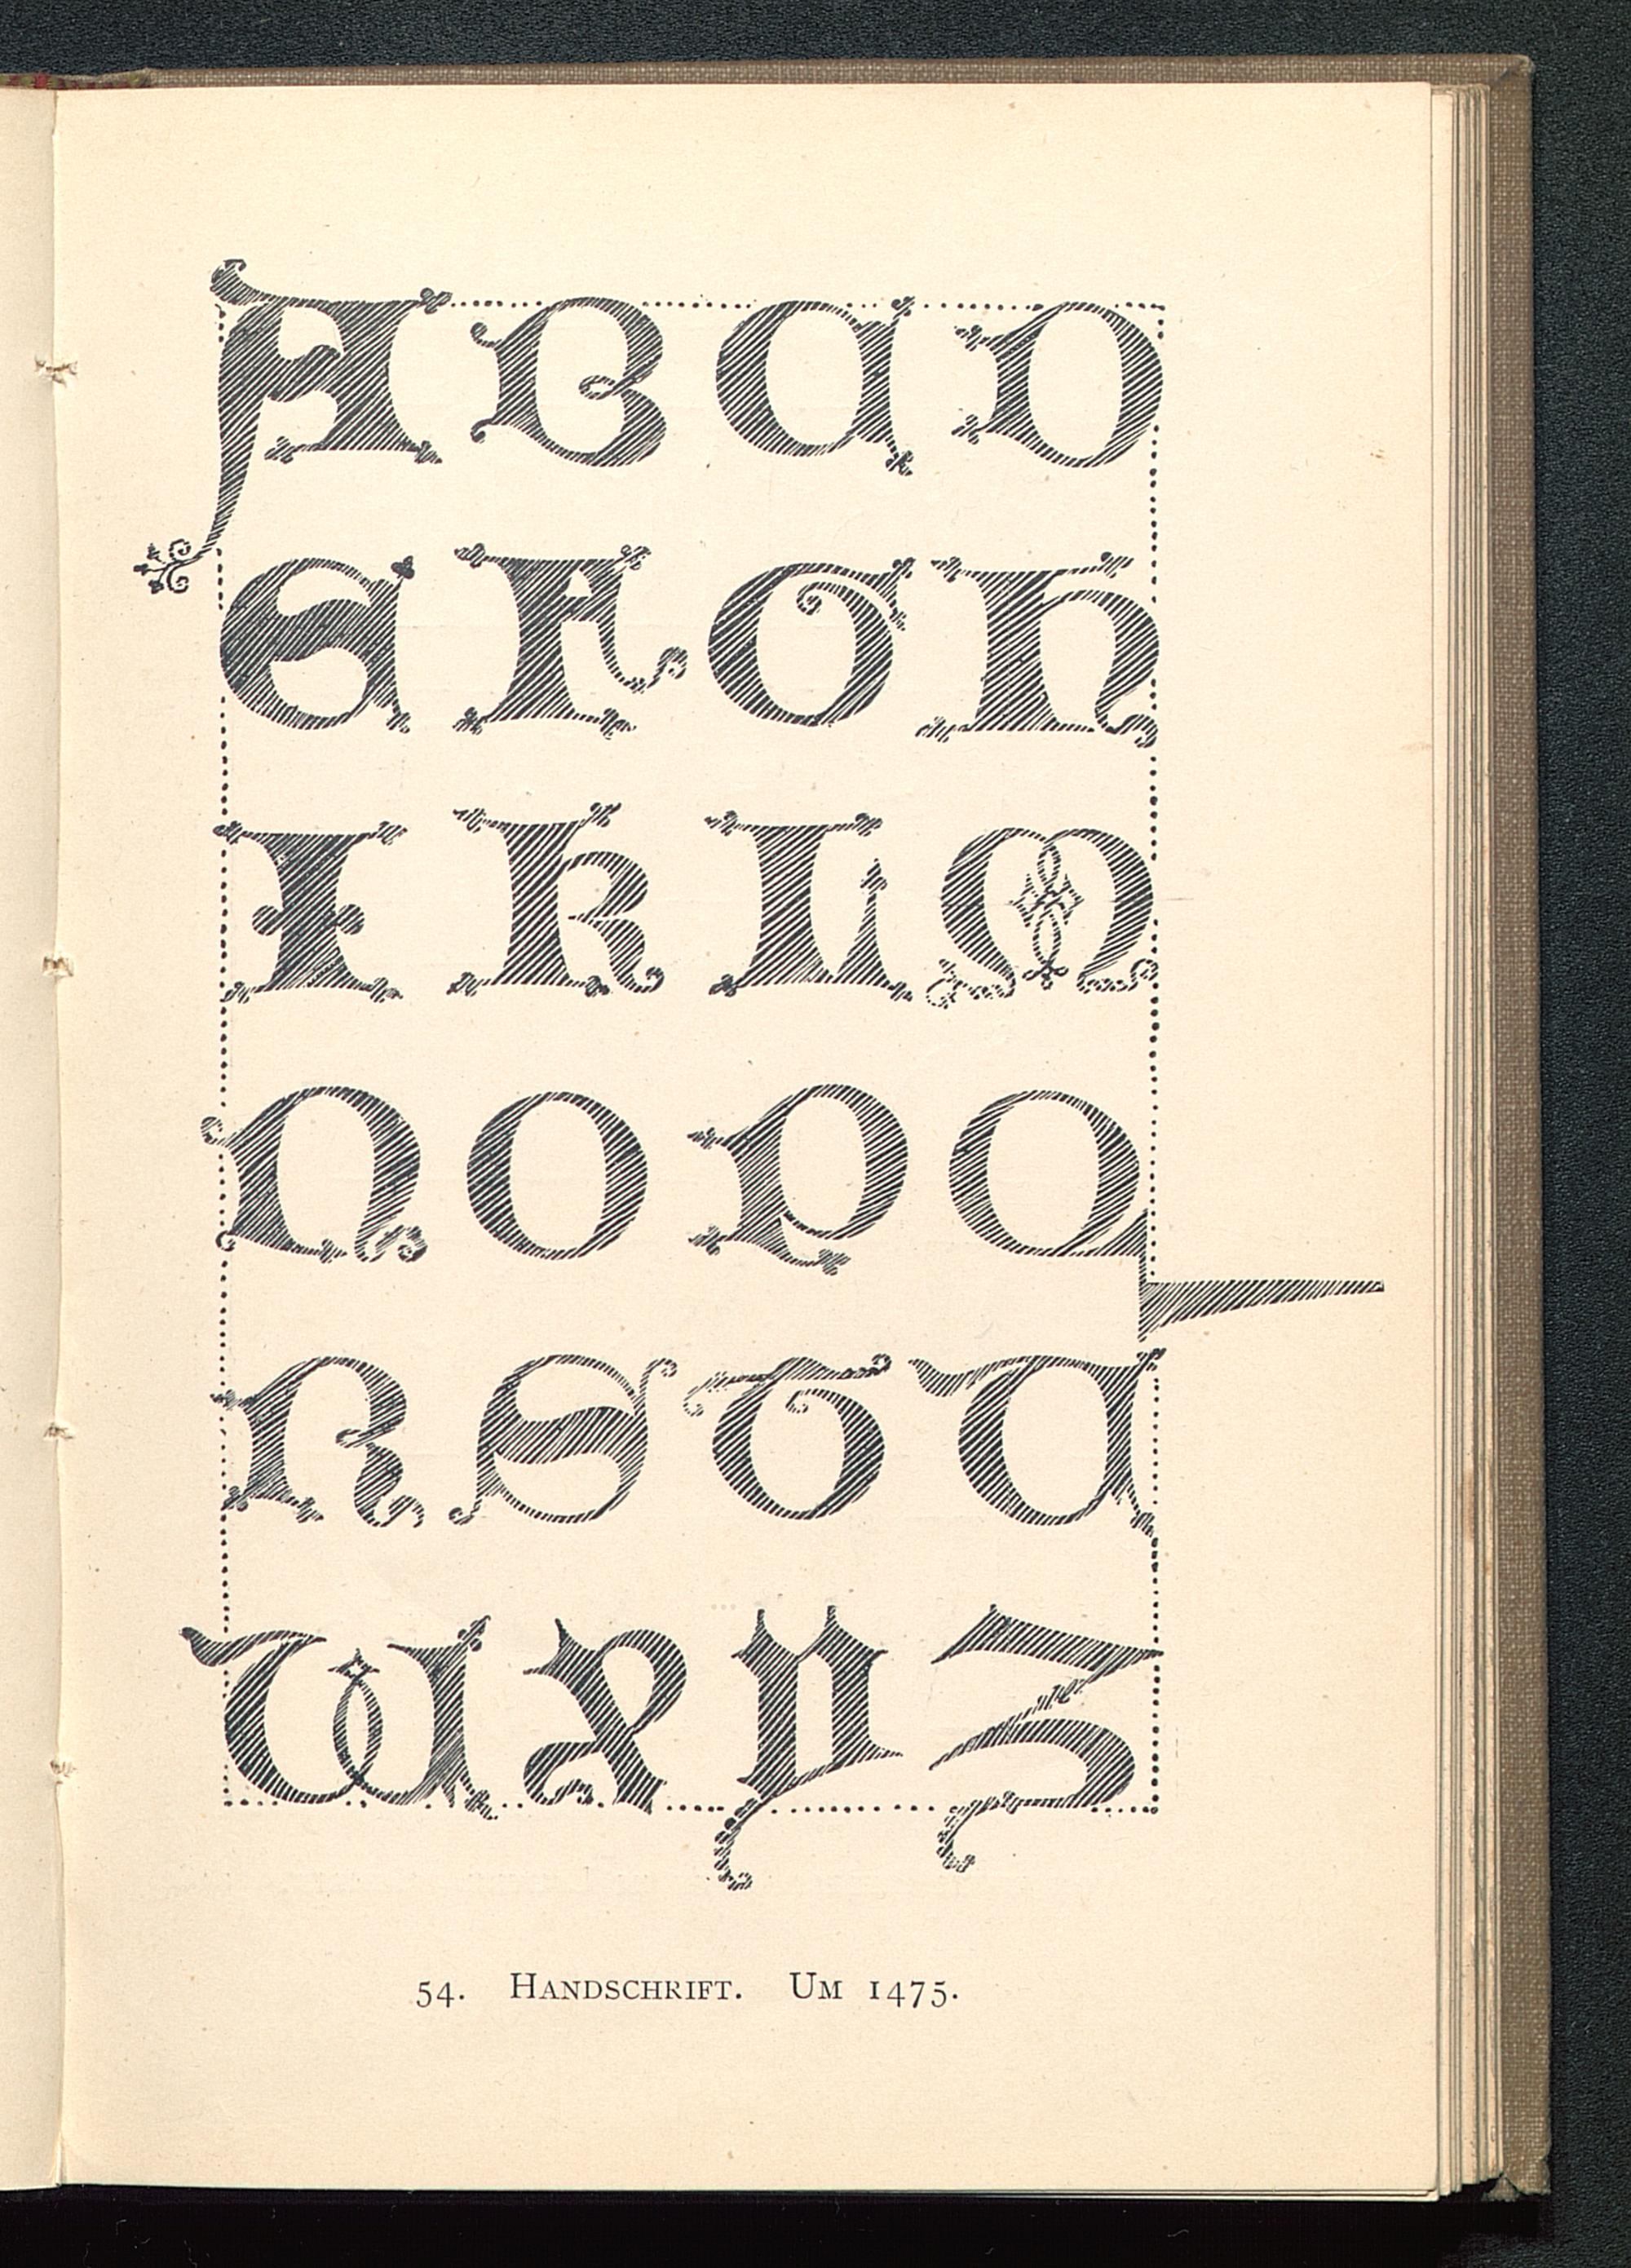 A B C D
E F G H
I K L M
N O P Q
R S T U
W X Y Z
54. HANDSCHRIFT. UM 1475.